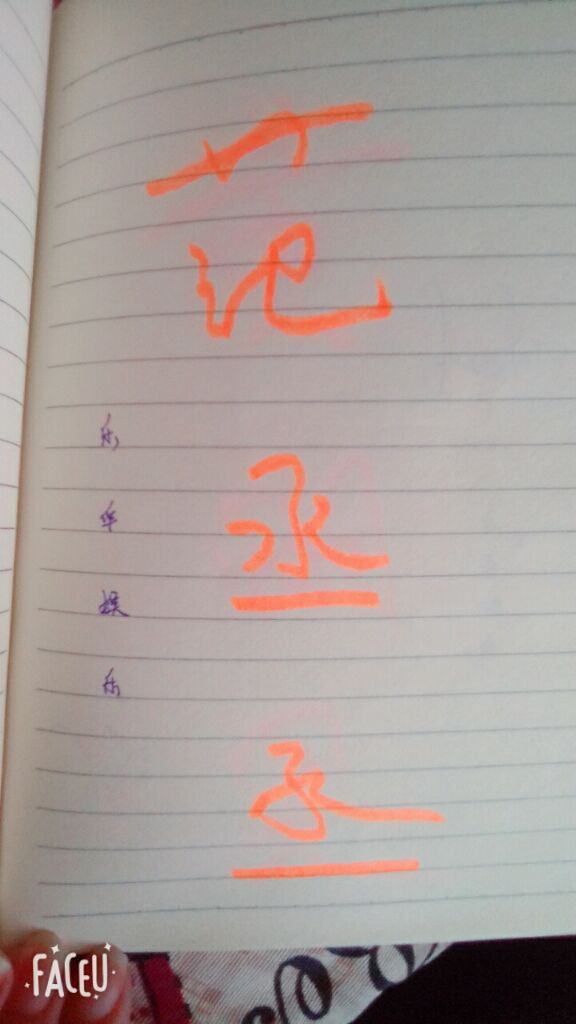 范
丞
丞
乐
华
娱
乐
FACEU